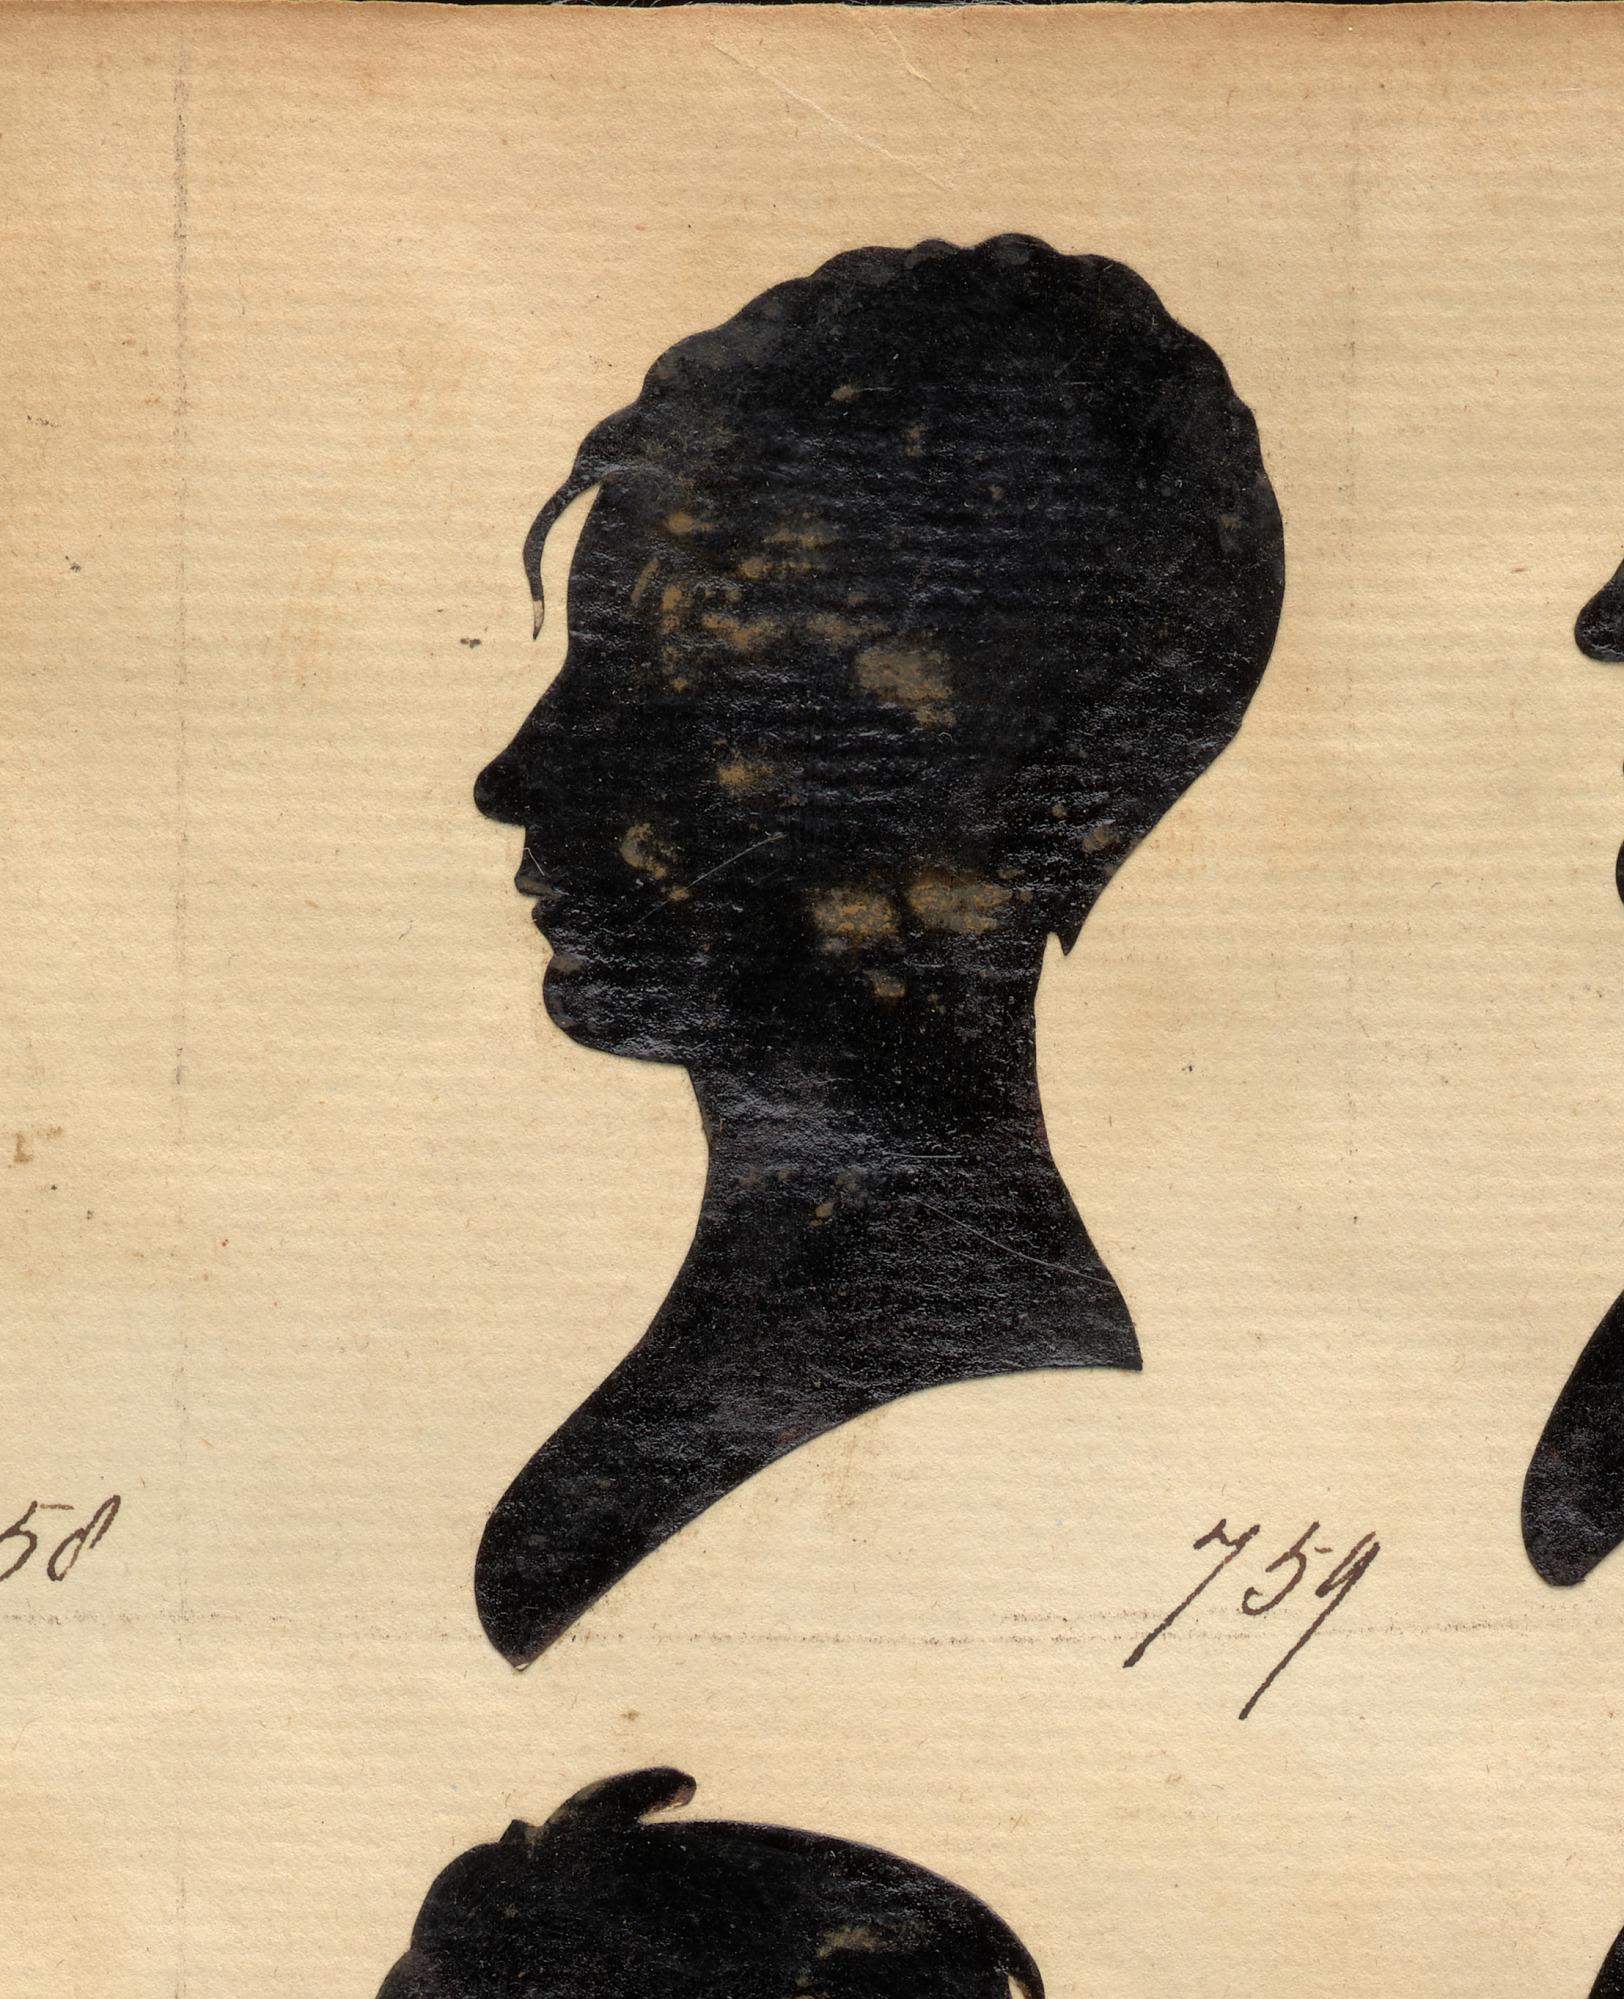 58
759